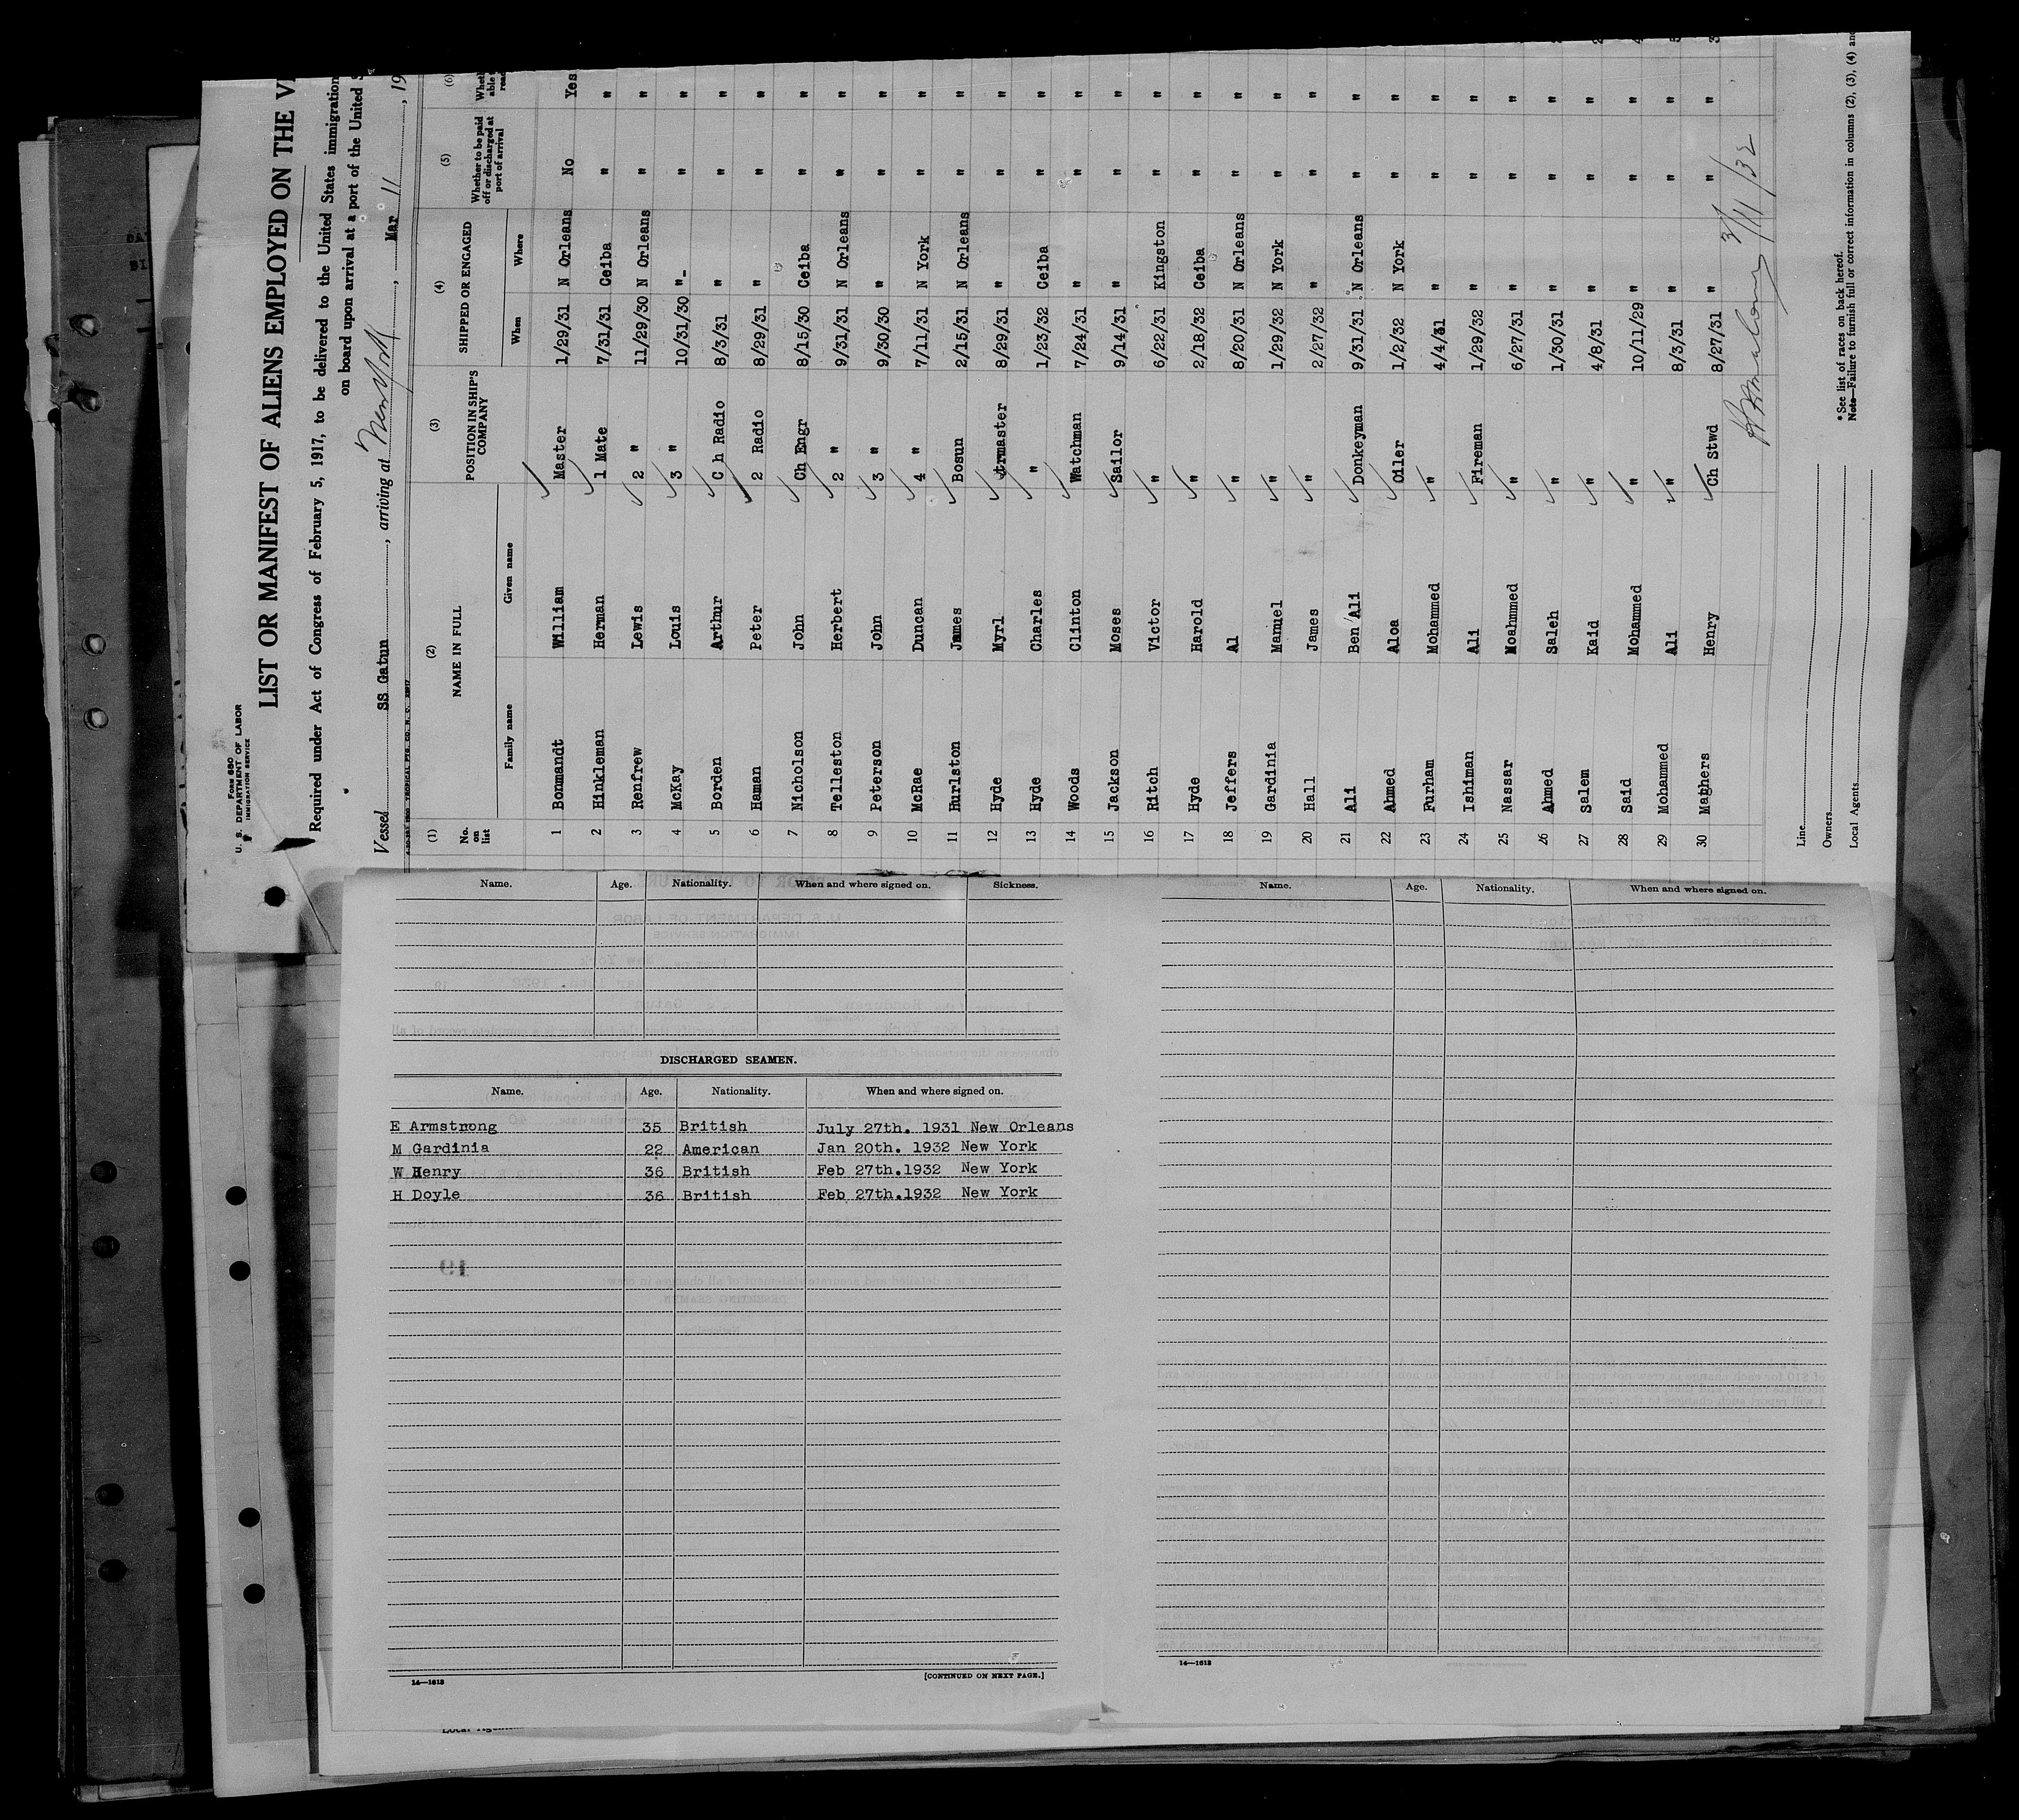 Form 680
U. S. DEPARTMENT OF LABOR
IMMIGRATION SERVICE
LIST OR MANIFEST OF ALIENS EMPLOYED ON THE
Required under Act of Congress of February 5, 1917, to be delivered to the United States immigration
on board upon arrival at a port of the United
Vessel SS Gatun, arriving at New York, Mar 11, 19
(1) (2) (3) (4) (5) (6)
No. on list NAME IN FULL POSITION IN SHIP'S COMPANY SHIPPED OR ENGAGED Whether to be paid off or discharged at port of arrival
Family name Given name When Where
1 Bonmandt William Master 1/29/31 N Orleans No Yes
2 Hinkleman Herman 1 Mate 7/31/31 Ceiba " "
3 Renfrew Lewis 2 " 11/29/30 N Orleans " "
4 McKay Louis 3 " 10/31/30 "- " "
5 Borden Arthur C h Radio 8/3/31 " " "
6 Haman Peter 2 Radio 8/29/31 " " "
7 Nicholson John Ch Engr 8/15/30 Ceiba " "
8 Telleston Herbert 2 " 9/31/31 N Orleans " "
9 Peterson John 3 " 9/30/30 " " "
10 McRae Duncan 4 " 7/11/31 N York " "
11 Hurlston James Bosun 2/15/31 N Orleans " "
12 Hyde Myrl 8/29/31 " " "
13 Hyde Charles " 1/23/32 Ceiba " "
14 Woods Clinton Watchman 7/24/31 " " "
15 Jackson Moses Sailor 9/14/31 " " "
16 Ritch Victor " 6/22/31 Kingston " "
17 Hyde Harold " 2/18/32 Ceiba " "
18 Jeffers Al " 8/20/31 N Orleans " "
19 Gardinia Manuel " 1/29/32 N York " "
20 Hall James " 2/27/32 " " "
21 Ali Ben Ali Donkeyman 9/31/31 N Orleans " "
22 Ahmed Aloa Oiler 1/2/32 N York " "
23 Furham Mohammed " 4/4/31 " " "
24 Ishiman Ali Fireman 1/29/32 " " "
25 Nassar Moahmmed " 6/27/31 " " "
26 Ahmed Saleh " 1/30/31 " " "
27 Salem Kaid " 4/8/31 " " "
28 Said Mohammed " 10/11/29 " " "
29 Mohammed Ali " 8/3/31 " " "
30 Maghers Henry Ch Stwd 8/27/31 " " "
3/11/32
Line
Owners
Local Agents
*See list of races on back hereof.
Note—Failure to furnish full or correct information in columns (2), (3), (4) and
Name. Age. Nationality. When and where signed on. Sickness.
DISCHARGED SEAMEN.
Name. Age. Nationality. When and where signed on.
E Armstrong 35 British July 27th. 1931 New Orleans
M Gardinia 22 American Jan 20th. 1932 New York
W Henry 36 British Feb 27th.1932 New York
H Doyle 36 British Feb 27th.1932 New York
14—1618
[CONTINUED ON NEXT PAGE.]
Name. Age. Nationality. When and where signed on.
14—1618